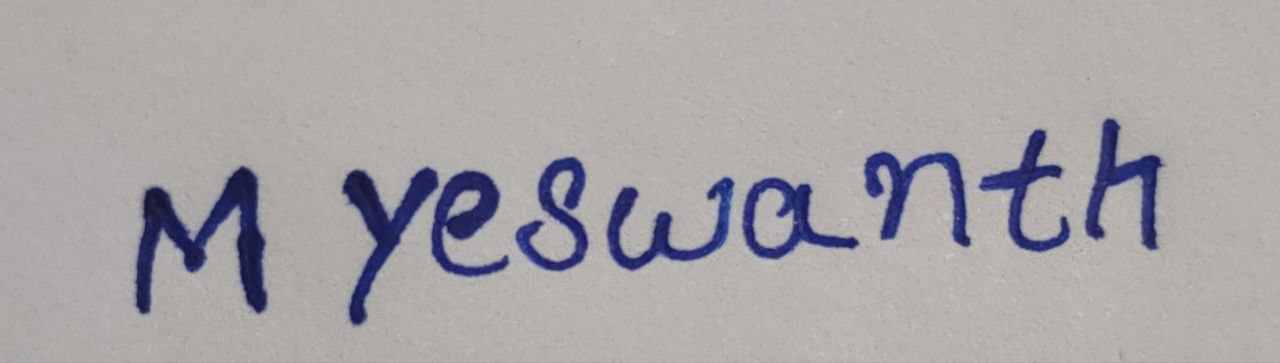 M yeswanth